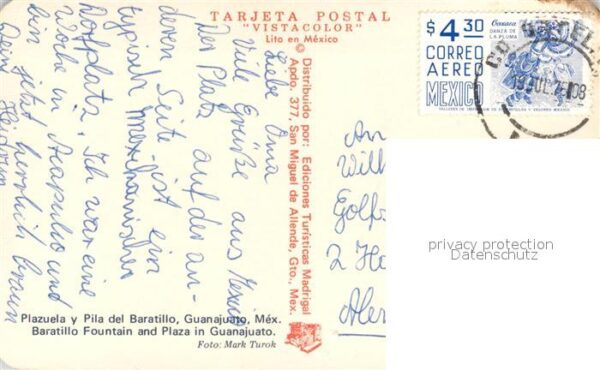 TARJETA POSTAL
"VISTACOLOR"
Lito en México
©
$4.30
Oaxaca
DANZA DE
LA PLUMA
CORREO
AEREO
MEXICO
Distribuido por: Ediciones Turísticas Madrigal
Apdo. 377, San Miguel de Allende, Gto., Mex.
Liebe Oma
Viele Grüße aus Mexico
Der Platz auf der an-
deren Seite ist ein
typisch mexikanischer
Dorfplatz. Ich war eine
Woche in Acapulco und
bin jetzt herrlich braun
Dein
An
Wilh
Golf
2 Ha
Alem
privacy protection
Datenschutz
Plazuela y Pila del Baratillo, Guanajuato, Méx.
Baratillo Fountain and Plaza in Guanajuato.
Foto: Mark Turok